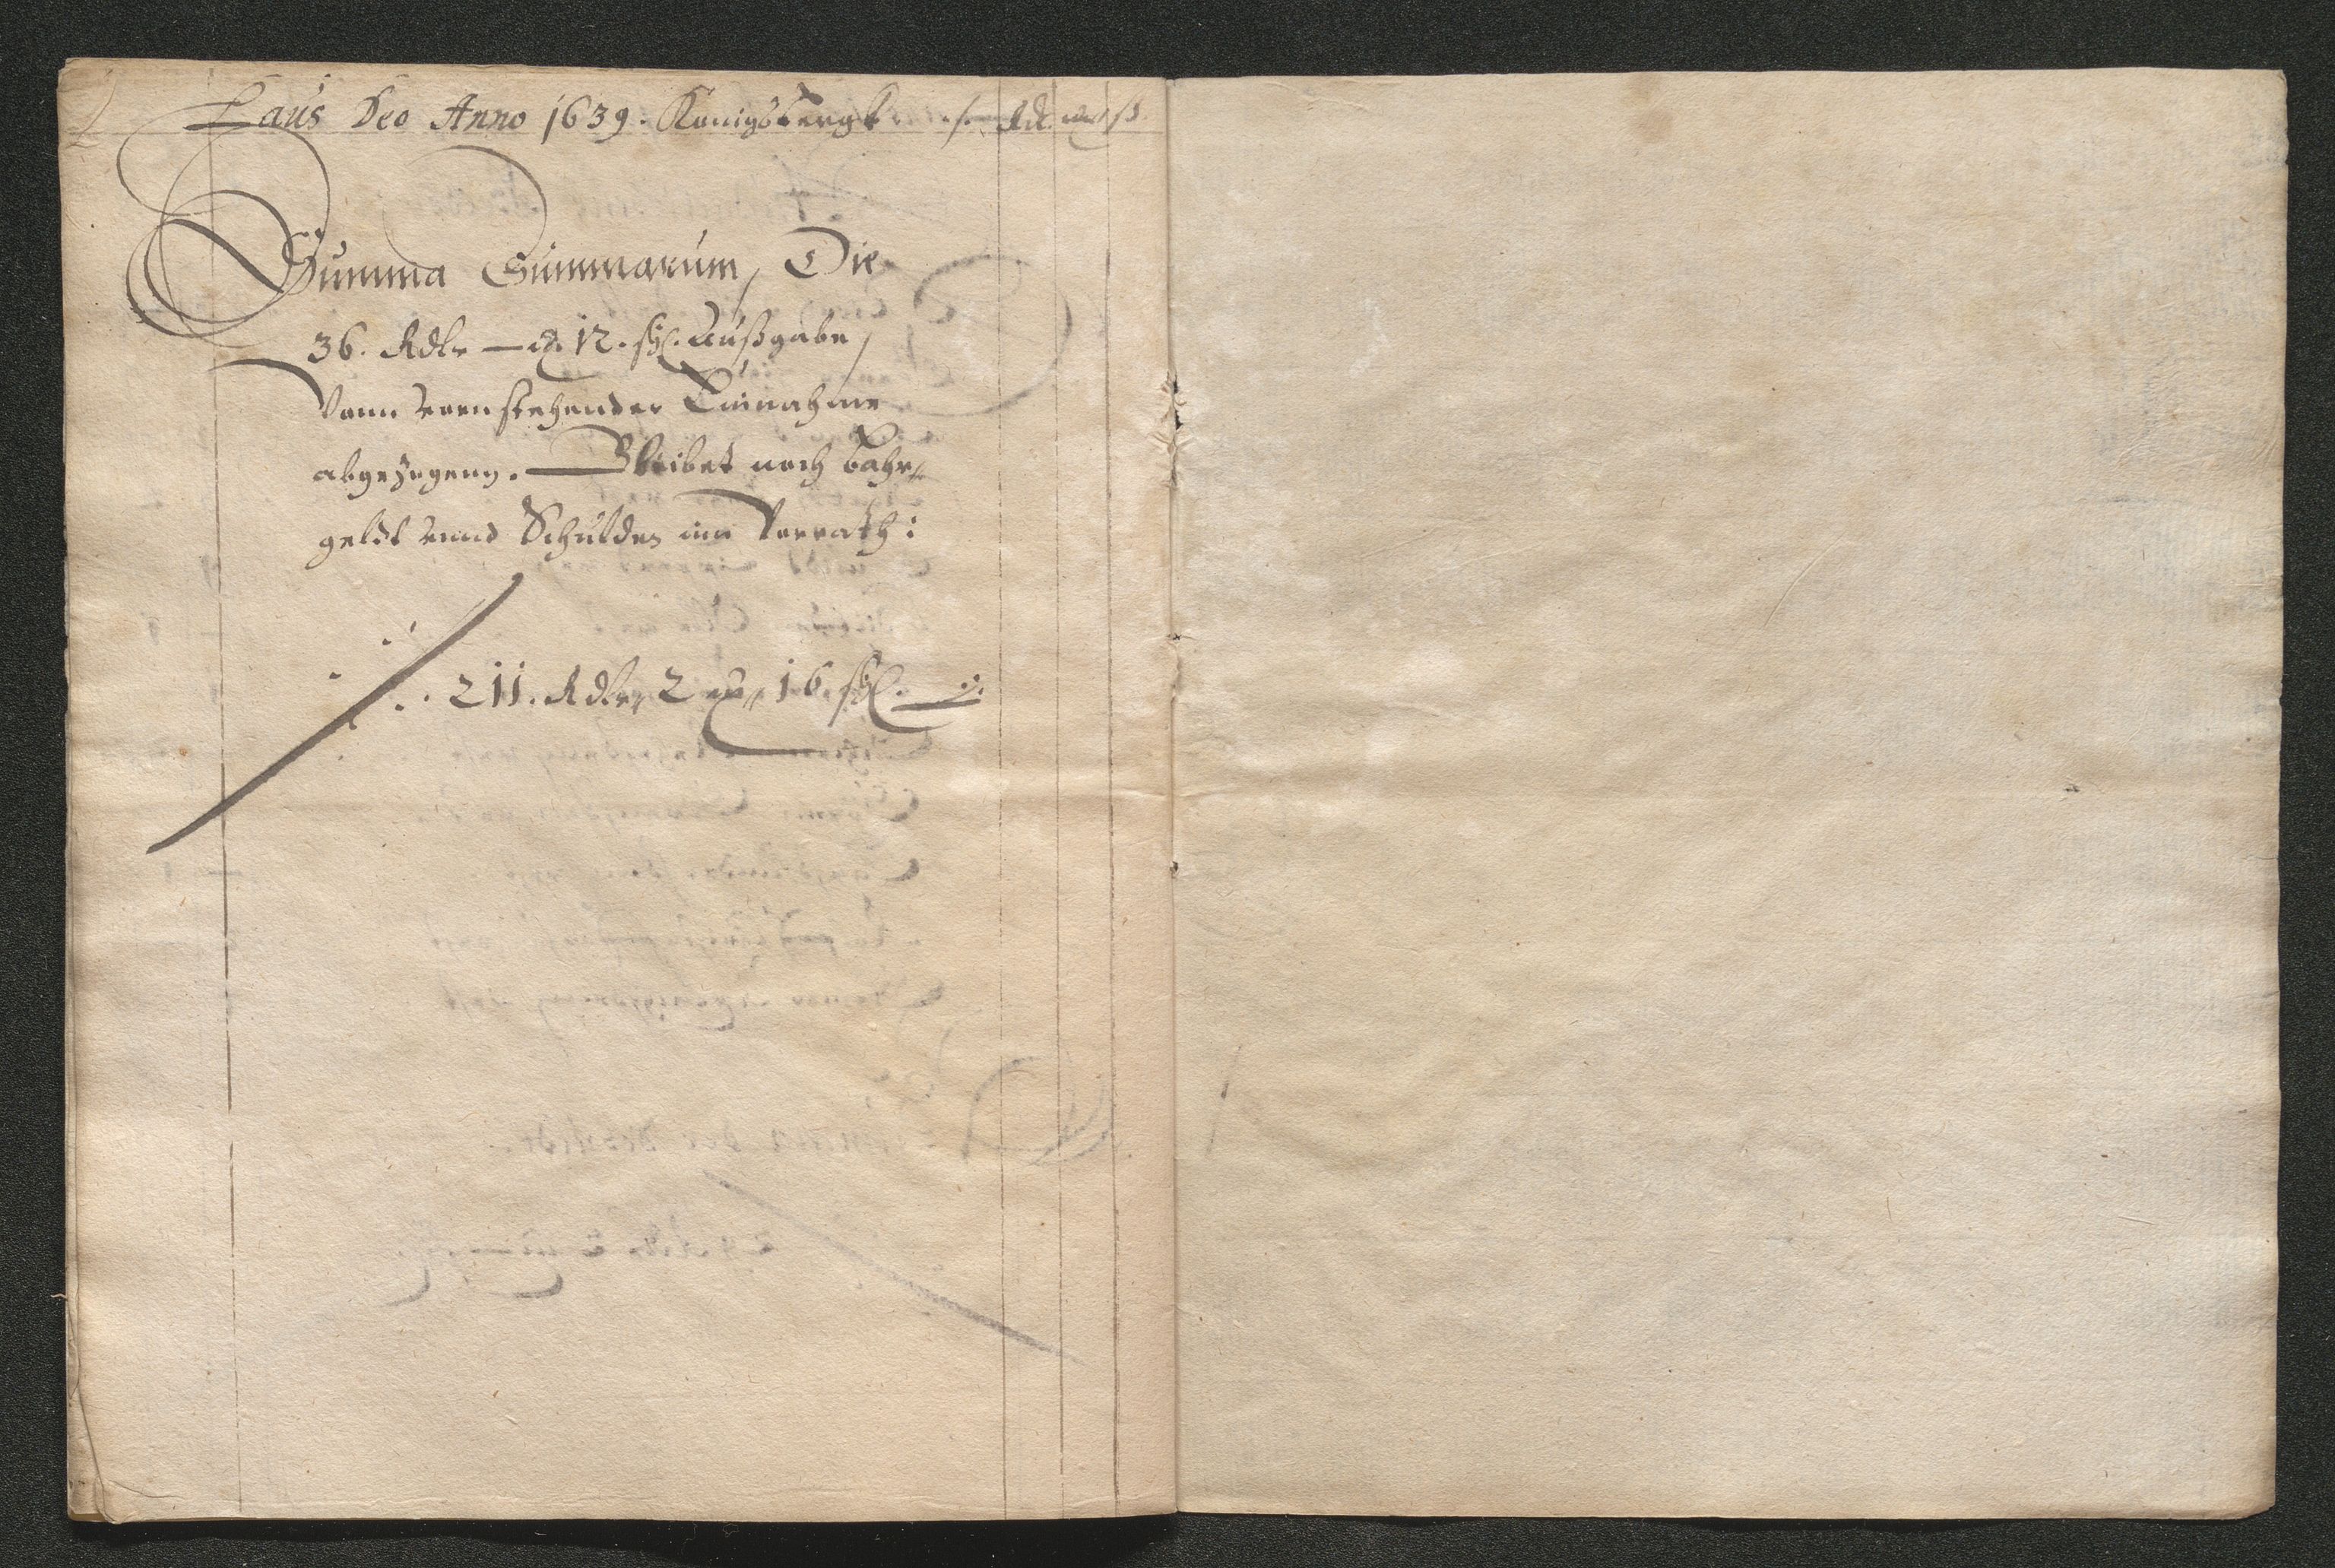 Laus Deo Anno 1639. Königsbergk ./. Rdr. mr ß
Summa Summarum, Die
36. Rdlr — mr. 12. ßl. Außgabe,
Vonn vornstehender Einnahme
abgezogenn. Bleibet noch bahr
geldt vnnd Schulden inn Vorrath:
211. Rdlr 2 mr 16 ßl.